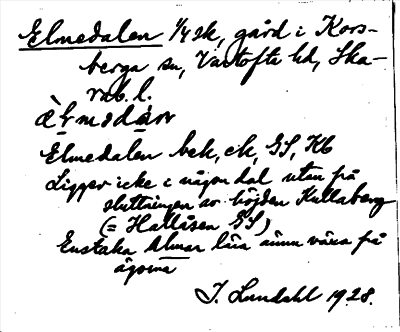 Elmedalen 1/4 sk, gård i Kors-
berga sn, Vartofta hd, Ska-
rab. l.
Elmedalen bek, ek, GS, Kb
Ligger icke i någon dal utan på
sluttningen av höjden Kullaberg
(= Hallåsen GS)
Enstaka almar lära ännu växa på
ägorna
J. Lundahl 1928.